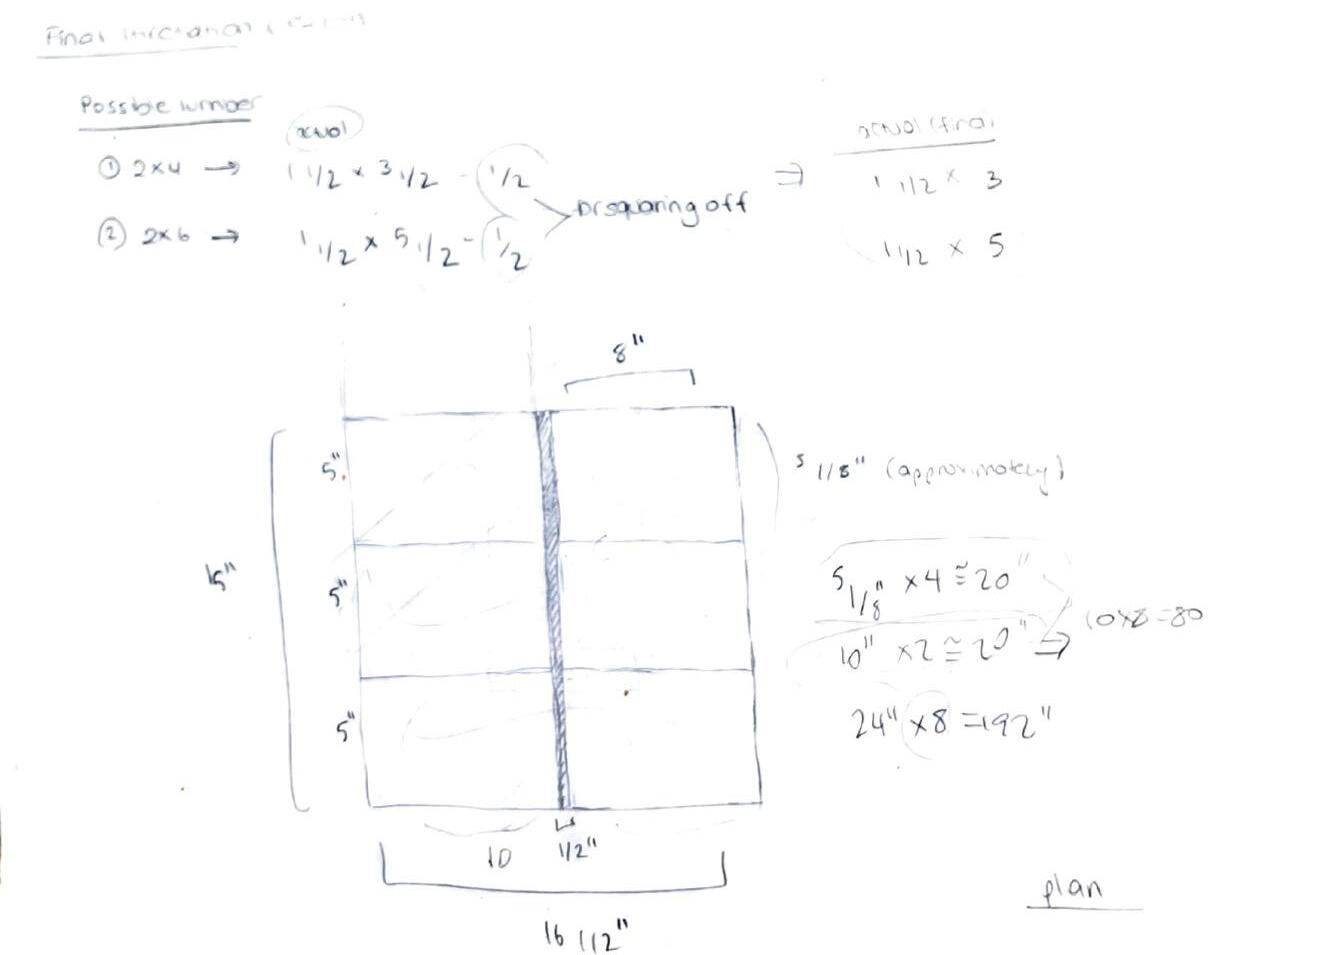 Final
Possible lumber
actual
① 2x4 → 1 1/2 x 3 1/2 - 1/2
② 2x6 → 1 1/2 x 5 1/2 - 1/2
squaring off
⇒
actual (final
1 1/2 x 3
1 1/2 x 5
8"
5"
5"
5"
15"
5 1/8" (approximately)
5 1/8" x4 ≅ 20"
10" x2 ≅ 20" ⇒ 10x8=80
24" x8 = 192"
10
1/2"
16 1/2"
plan